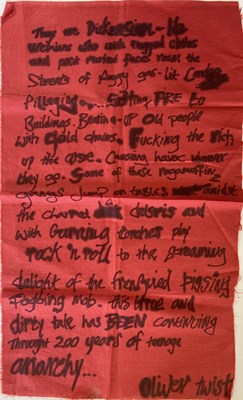 They are Dickensian-like
Urchins who with ragged clothes
and pock marked faces roam the
Streets of foggy gas-lit London
Pillaging.... Setting FIRE to
Buildings. Beating-UP old people
with Gold chains. Fucking the Rich
up the arse. Causing havoc wherever
they go. Some of these ragamuffin
gangs jump on tables amidst
the charred debris and
with Burning torches play
rock 'n roll to the screaming
delight of the frenzied PISSING
Pogoing mob. this true and
dirty tale has BEEN continuing
Throught 200 years of teenage
anarchy...
Oliver twist